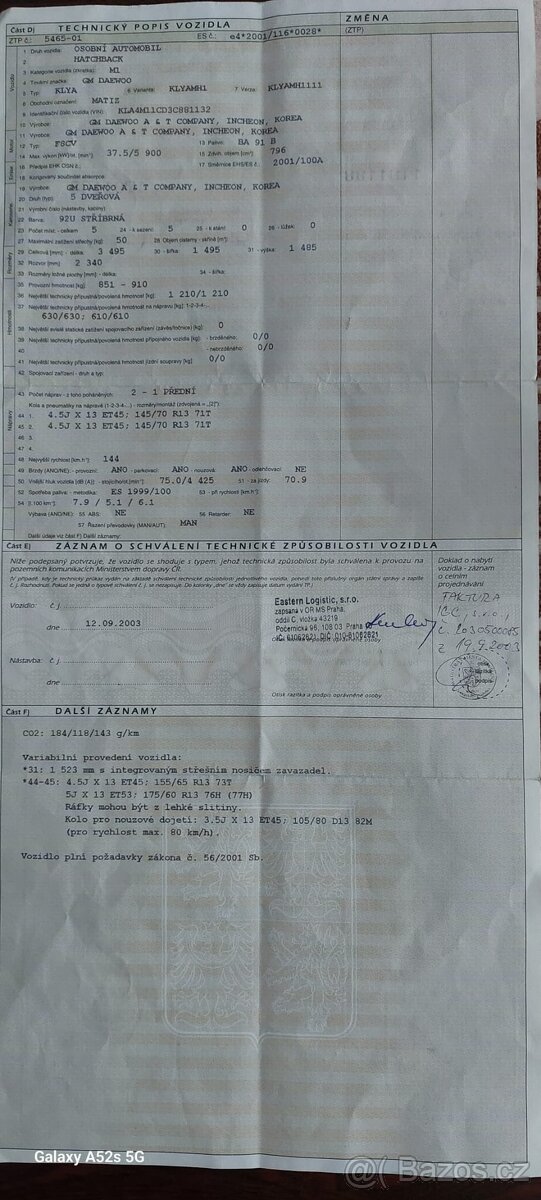 Část D) TECHNICKÝ POPIS VOZIDLA ZMĚNA
ZTP č.: 5465-01 ES č.: e4*2001/116*0028* (ZTP)
1 Druh vozidla: OSOBNÍ AUTOMOBIL
2 HATCHBACK
3 Kategorie vozidla (zkratka): M1
4 Tovární značka: GM DAEWOO
5 Typ: KLYA 6 Varianta: KLYAMH1 7 Verze: KLYAMH1111
8 Obchodní označení: MATIZ
9 Identifikační číslo vozidla (VIN): KLA4M11CD3C881132
10 Výrobce: GM DAEWOO A & T COMPANY, INCHEON, KOREA
11 Výrobce: GM DAEWOO A & T COMPANY, INCHEON, KOREA
12 Typ: F8CV 13 Palivo: BA 91 B
14 Max. výkon [kW]/ot. [min⁻¹]: 37.5/5 900 15 Zdvih. objem [cm³]: 796
16 Předpis EHK OSN č.: 17 Směrnice EHS/ES č.: 2001/100A
18 Korigovaný součinitel absorpce:
19 Výrobce: GM DAEWOO A & T COMPANY, INCHEON, KOREA
20 Druh (typ): 5 DVEŘOVÁ
21 Výrobní číslo (nástavby, kabiny)
22 Barva: 92U STŘÍBRNÁ
23 Počet míst: - celkem 5 24 - k sezení: 5 25 - k stání: 0 26 - lůžek: 0
27 Maximální zatížení střechy [kg]: 50 28 Objem cisterny - skříně [m³]:
29 Celková [mm] - délka: 3 495 30 - šířka: 1 495 31 - výška: 1 485
32 Rozvor [mm]: 2 340
33 Rozměry ložné plochy [mm] - délka: 34 - šířka:
35 Provozní hmotnost [kg]: 851 - 910
36 Největší technicky přípustná/povolená hmotnost [kg]: 1 210/1 210
37 Největší technicky přípustná/povolená hmotnost na nápravu [kg]: 1-2-3-4-..
630/630; 610/610
38 Největší svislé statické zatížení spojovacího zařízení (závěs/točnice) [kg]: 0
39 Největší technicky přípustná/povolená hmotnost přípojného vozidla [kg]: - brzděného: 0/0
40 - nebrzděného: 0/0
41 Největší technicky přípustná/povolená hmotnost jízdní soupravy [kg]: 0/0
42 Spojovací zařízení - druh a typ:
43 Počet náprav - z toho poháněných: 2 - 1 PŘEDNÍ
Kola a pneumatiky na nápravě (1-2-3-4-...) - rozměry/montáž (zdvojená = „[2]“):
44 1. 4.5J X 13 ET45; 145/70 R13 71T
45 2. 4.5J X 13 ET45; 145/70 R13 71T
46 3.
47 4.
48 Největší rychlost [km.h⁻¹]: 144
49 Brzdy (ANO/NE): - provozní: ANO - parkovací: ANO - nouzová: ANO - odlehčovací: NE
50 Vnější hluk vozidla [dB (A)]: - stojící/ot[min⁻¹]: 75.0/4 425 51 - za jízdy: 70.9
52 Spotřeba paliva: - metodika: ES 1999/100 53 - při rychlosti [km.h⁻¹]:
54 [l.100 km⁻¹]: 7.9 / 5.1 / 6.1
Výbava (ANO/NE): 55 ABS: NE 56 Retarder: NE
57 Řazení převodovky (MAN/AUT): MAN
Další údaje viz část F) Další záznamy:
Část E) ZÁZNAM O SCHVÁLENÍ TECHNICKÉ ZPŮSOBILOSTI VOZIDLA
Níže podepsaný potvrzuje, že vozidlo se shoduje s typem, jehož technická způsobilost byla schválena k provozu na
pozemních komunikacích Ministerstvem dopravy ČR.
Doklad o nabytí
vozidla - záznam
o celním
projednávání
FAKTURA
ICC, s.r.o.,
z 19.9.2003
Vozidlo: č. j.
dne 12.09.2003
Eastern Logistic, s.r.o.
zapsána v OR MS Praha,
oddíl C, vložka 43219
Počernická 96, 108 03 Praha
IČ: 61062621, DIČ: 010-61062621
Nástavba: č. j.
dne
Otisk razítka a podpis oprávněné osoby
Část F) DALŠÍ ZÁZNAMY
CO2: 184/118/143 g/km
Variabilní provedení vozidla:
*31: 1 523 mm s integrovaným střešním nosičem zavazadel.
*44-45: 4.5J X 13 ET45; 155/65 R13 73T
5J X 13 ET53; 175/60 R13 76H (77H)
Ráfky mohou být z lehké slitiny.
Kolo pro nouzové dojetí: 3.5J X 13 ET45; 105/80 D13 82M
(pro rychlost max. 80 km/h).
Vozidlo plní požadavky zákona č. 56/2001 Sb.
Galaxy A52s 5G
Bazos.cz